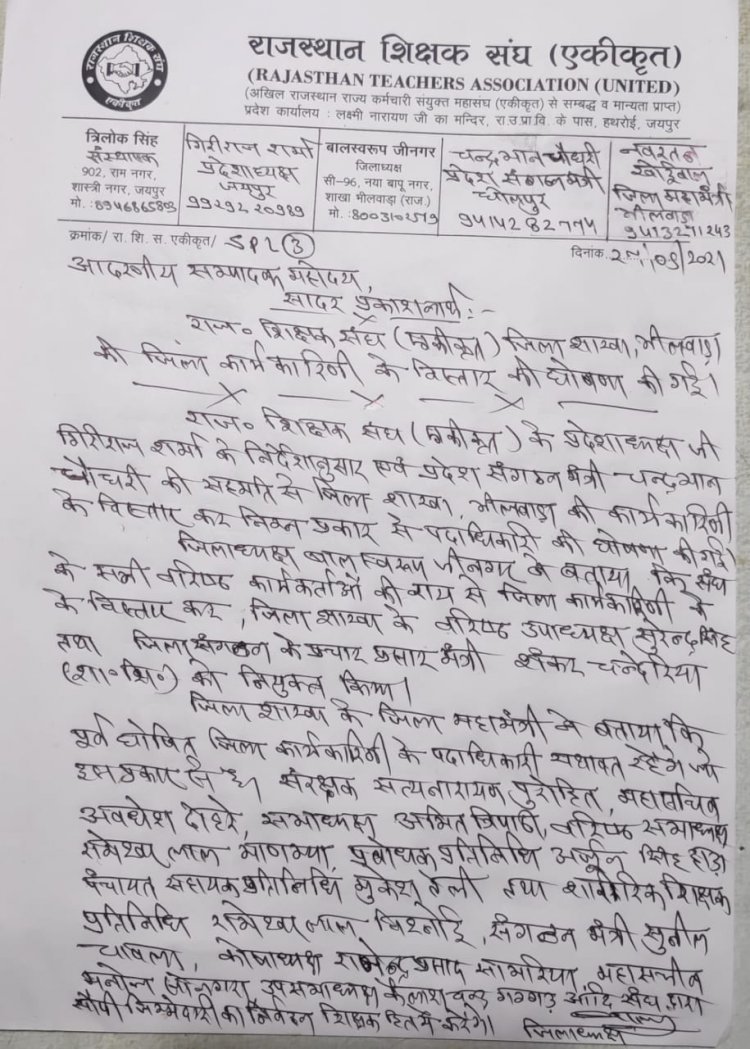 राजस्थान शिक्षक संघ
एकीकृत
राजस्थान शिक्षक संघ (एकीकृत)
(RAJASTHAN TEACHERS ASSOCIATION (UNITED)
(अखिल राजस्थान राज्य कर्मचारी संयुक्त महासंघ (एकीकृत) से सम्बद्ध व मान्यता प्राप्त)
प्रदेश कार्यालय : लक्ष्मी नारायण जी का मन्दिर, रा.उ.प्रा.वि. के पास, हथरोई, जयपुर
त्रिलोक सिंह
संस्थापक
902, राम नगर,
शास्त्री नगर, जयपुर
मो. :8946865893
गिरीराज शर्मा
प्रदेशाध्यक्ष
जयपुर
9929220989
बालस्वरूप जीनगर
जिलाध्यक्ष
सी-96, नया बापू नगर,
शाखा भीलवाड़ा (राज.)
मो. :8003102519
चन्द्रभान चौधरी
प्रदेश संगठन मंत्री
धोलपुर
9414282774
नवरतन
जिला महामंत्री
भीलवाड़ा
9413271243
क्रमांक/ रा. शि. स. एकीकृत/ SPL (3)
दिनांक. /08/2021
आदरणीय सम्पादक महोदय,
सादर प्रकाशनार्थ :-
राज० शिक्षक संघ (एकीकृत) जिला शाखा, भीलवाड़ा
की जिला कार्यकारिणी के विस्तार की घोषणा की गई।
राज० शिक्षक संघ (एकीकृत) के प्रदेशाध्यक्ष जी
गिरीराज शर्मा के निर्देशानुसार एवं प्रदेश संगठन मंत्री चन्द्रभान
चौधरी की सहमति से जिला शाखा, भीलवाड़ा की कार्यकारिणी
के विस्तार कर निम्न प्रकार से पदाधिकारी की घोषणा की गई।
जिलाध्यक्ष बालस्वरूप जीनगर ने बताया कि संघ
के सभी वरिष्ठ कार्यकर्ताओं की राय से जिला कार्यकारिणी के
के विस्तार कर, जिला शाखा के वरिष्ठ उपाध्यक्ष सुरेन्द्र सिंह
तथा जिला संगठन के प्रचार प्रसार मंत्री शंकर चन्देरिया
(शा०शि०) को नियुक्त किया।
जिला शाखा के जिला महामंत्री ने बताया कि
पूर्व घोषित जिला कार्यकारिणी के पदाधिकारी यथावत रहेंगे जो
इस प्रकार से है। संरक्षक सत्यनारायण पुरोहित, महासचिव
अवधेश दोहरे, सभाध्यक्ष अमित त्रिपाठी, वरिष्ठ सभाध्यक्ष
रामेश्वर लाल माणम्या, प्रबोधक प्रतिनिधि अर्जुन सिंह हाड़ा
पंचायत सहायक प्रतिनिधि मुकेश तेली तथा शारीरिक शिक्षक
प्रतिनिधि रामेश्वर लाल विश्नोई, संगठन मंत्री सुनील
चावला, कोषाध्यक्ष राजेन्द्र प्रसाद सामरिया, महासचिव
मनोज सोनगरा उपसभाध्यक्ष कैलाश चन्द्र गग्गड़ आदि संघ द्वारा
सौंपी जिम्मेदारी का निर्वहन शिक्षक हित में करेंगे।
जिलाध्यक्ष